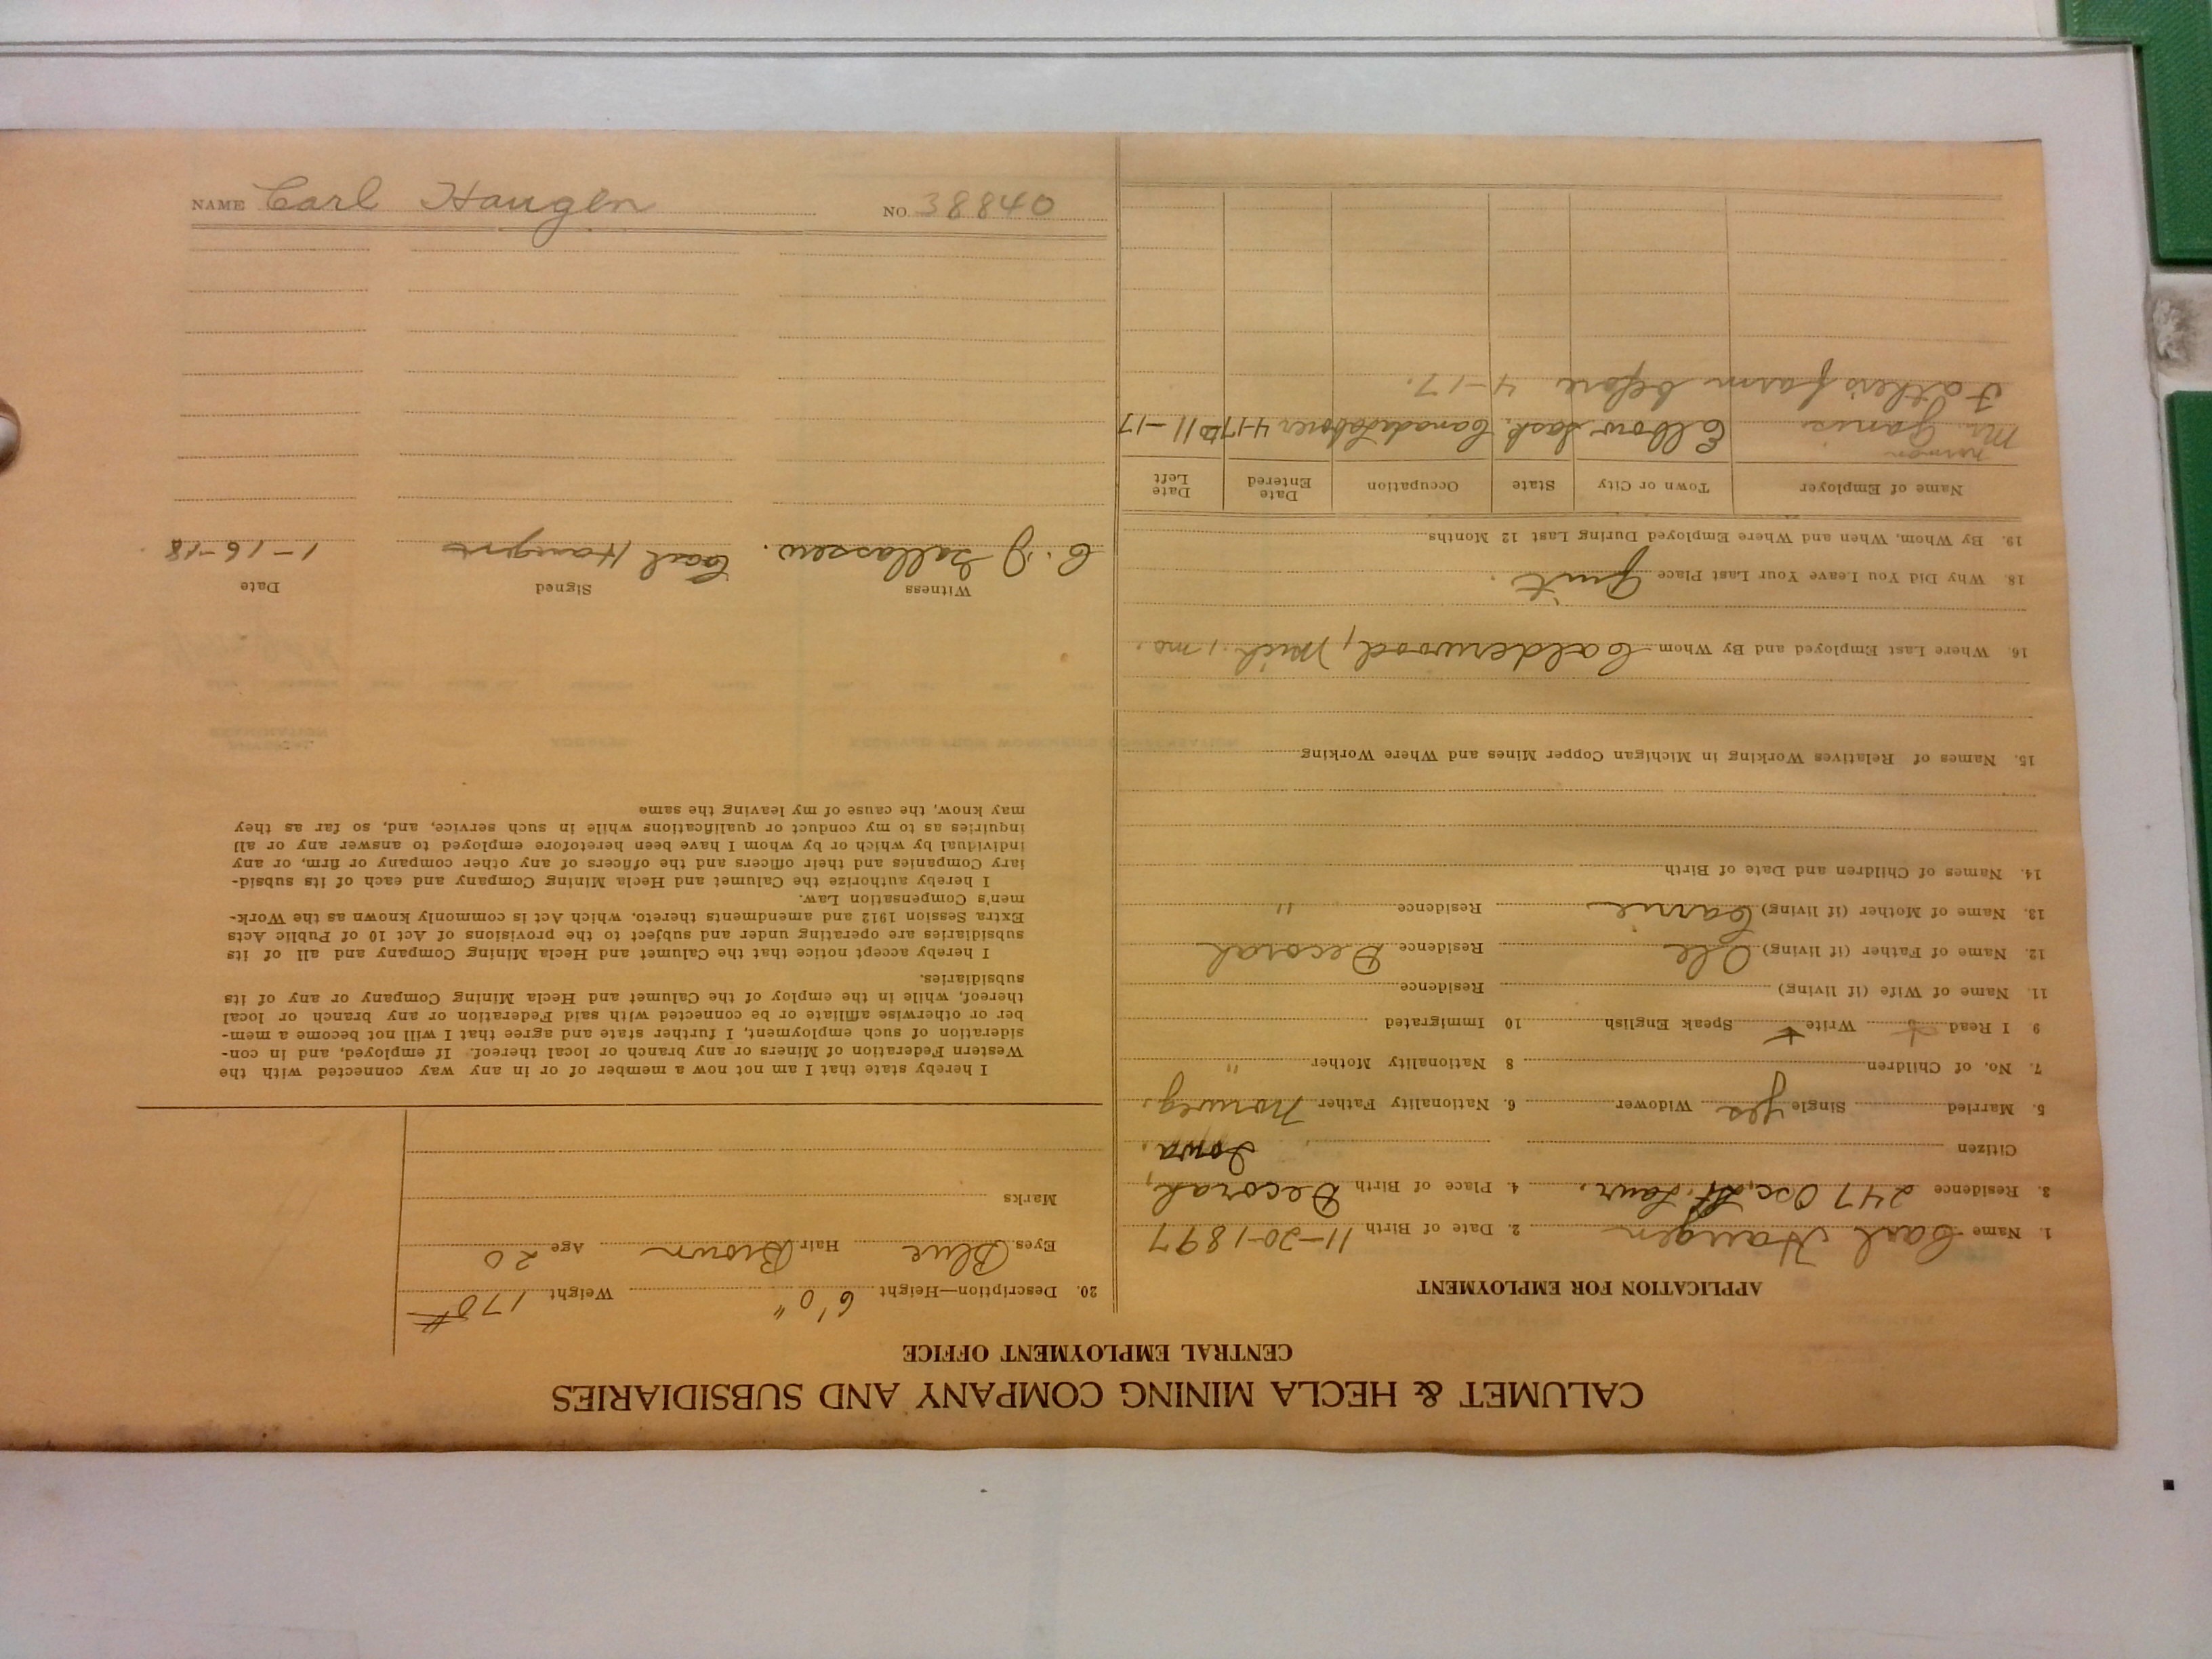 CALUMET & HECLA MINING COMPANY AND SUBSIDIARIES
CENTRAL EMPLOYMENT OFFICE
APPLICATION FOR EMPLOYMENT
1. Name Carl Haugen 2. Date of Birth 11-20-1897
3. Residence 247 Osc. St. Laur. 4. Place of Birth Decorah,
Citizen Iowa.
5. Married Single yes Widower 6. Nationality Father Norweg.
7. No. of Children 8 Nationality Mother "
9 I Read Write Speak English 10 Immigrated
11. Name of Wife (if living) Residence
12. Name of Father (if living) Ole Residence Decorah
13. Name of Mother (if living) Carrie Residence "
14. Names of Children and Date of Birth
15. Names of Relatives Working in Michigan Copper Mines and Where Working
16. Where Last Employed and By Whom Calderwood, Mich., mo.
18. Why Did You Leave Your Last Place Quit.
19. By Whom, When and Where Employed During Last 12 Months
Name of Employer Town or City State Occupation Date Entered Date Left
Norman
Mr. Elbow Sask. Canada Laborer 4-17 to 11-17
Father's farm before 4-17.
20. Description—Height 6'0" Weight 170#
Eyes Blue Hair Brown Age 20
Marks
I hereby state that I am not now a member of or in any way connected with the
Western Federation of Miners or any branch or local thereof. If employed, and in con-
sideration of such employment, I further state and agree that I will not become a mem-
ber or otherwise affiliate or be connected with said Federation or any branch or local
thereof, while in the employ of the Calumet and Hecla Mining Company or any of its
subsidiaries.
I hereby accept notice that the Calumet and Hecla Mining Company and all of its
subsidiaries are operating under and subject to the provisions of Act 10 of Public Acts
Extra Session 1912 and amendments thereto, which Act is commonly known as the Work-
men's Compensation Law.
I hereby authorize the Calumet and Hecla Mining Company and each of its subsid-
iary Companies and their officers and the officers of any other company or firm, or any
individual by which or by whom I have been heretofore employed to answer any or all
inquiries as to my conduct or qualifications while in such service, and, so far as they
may know, the cause of my leaving the same
Witness Signed Date
C. J. Carl Haugen 1-16-18
NAME Carl Haugen NO 38840